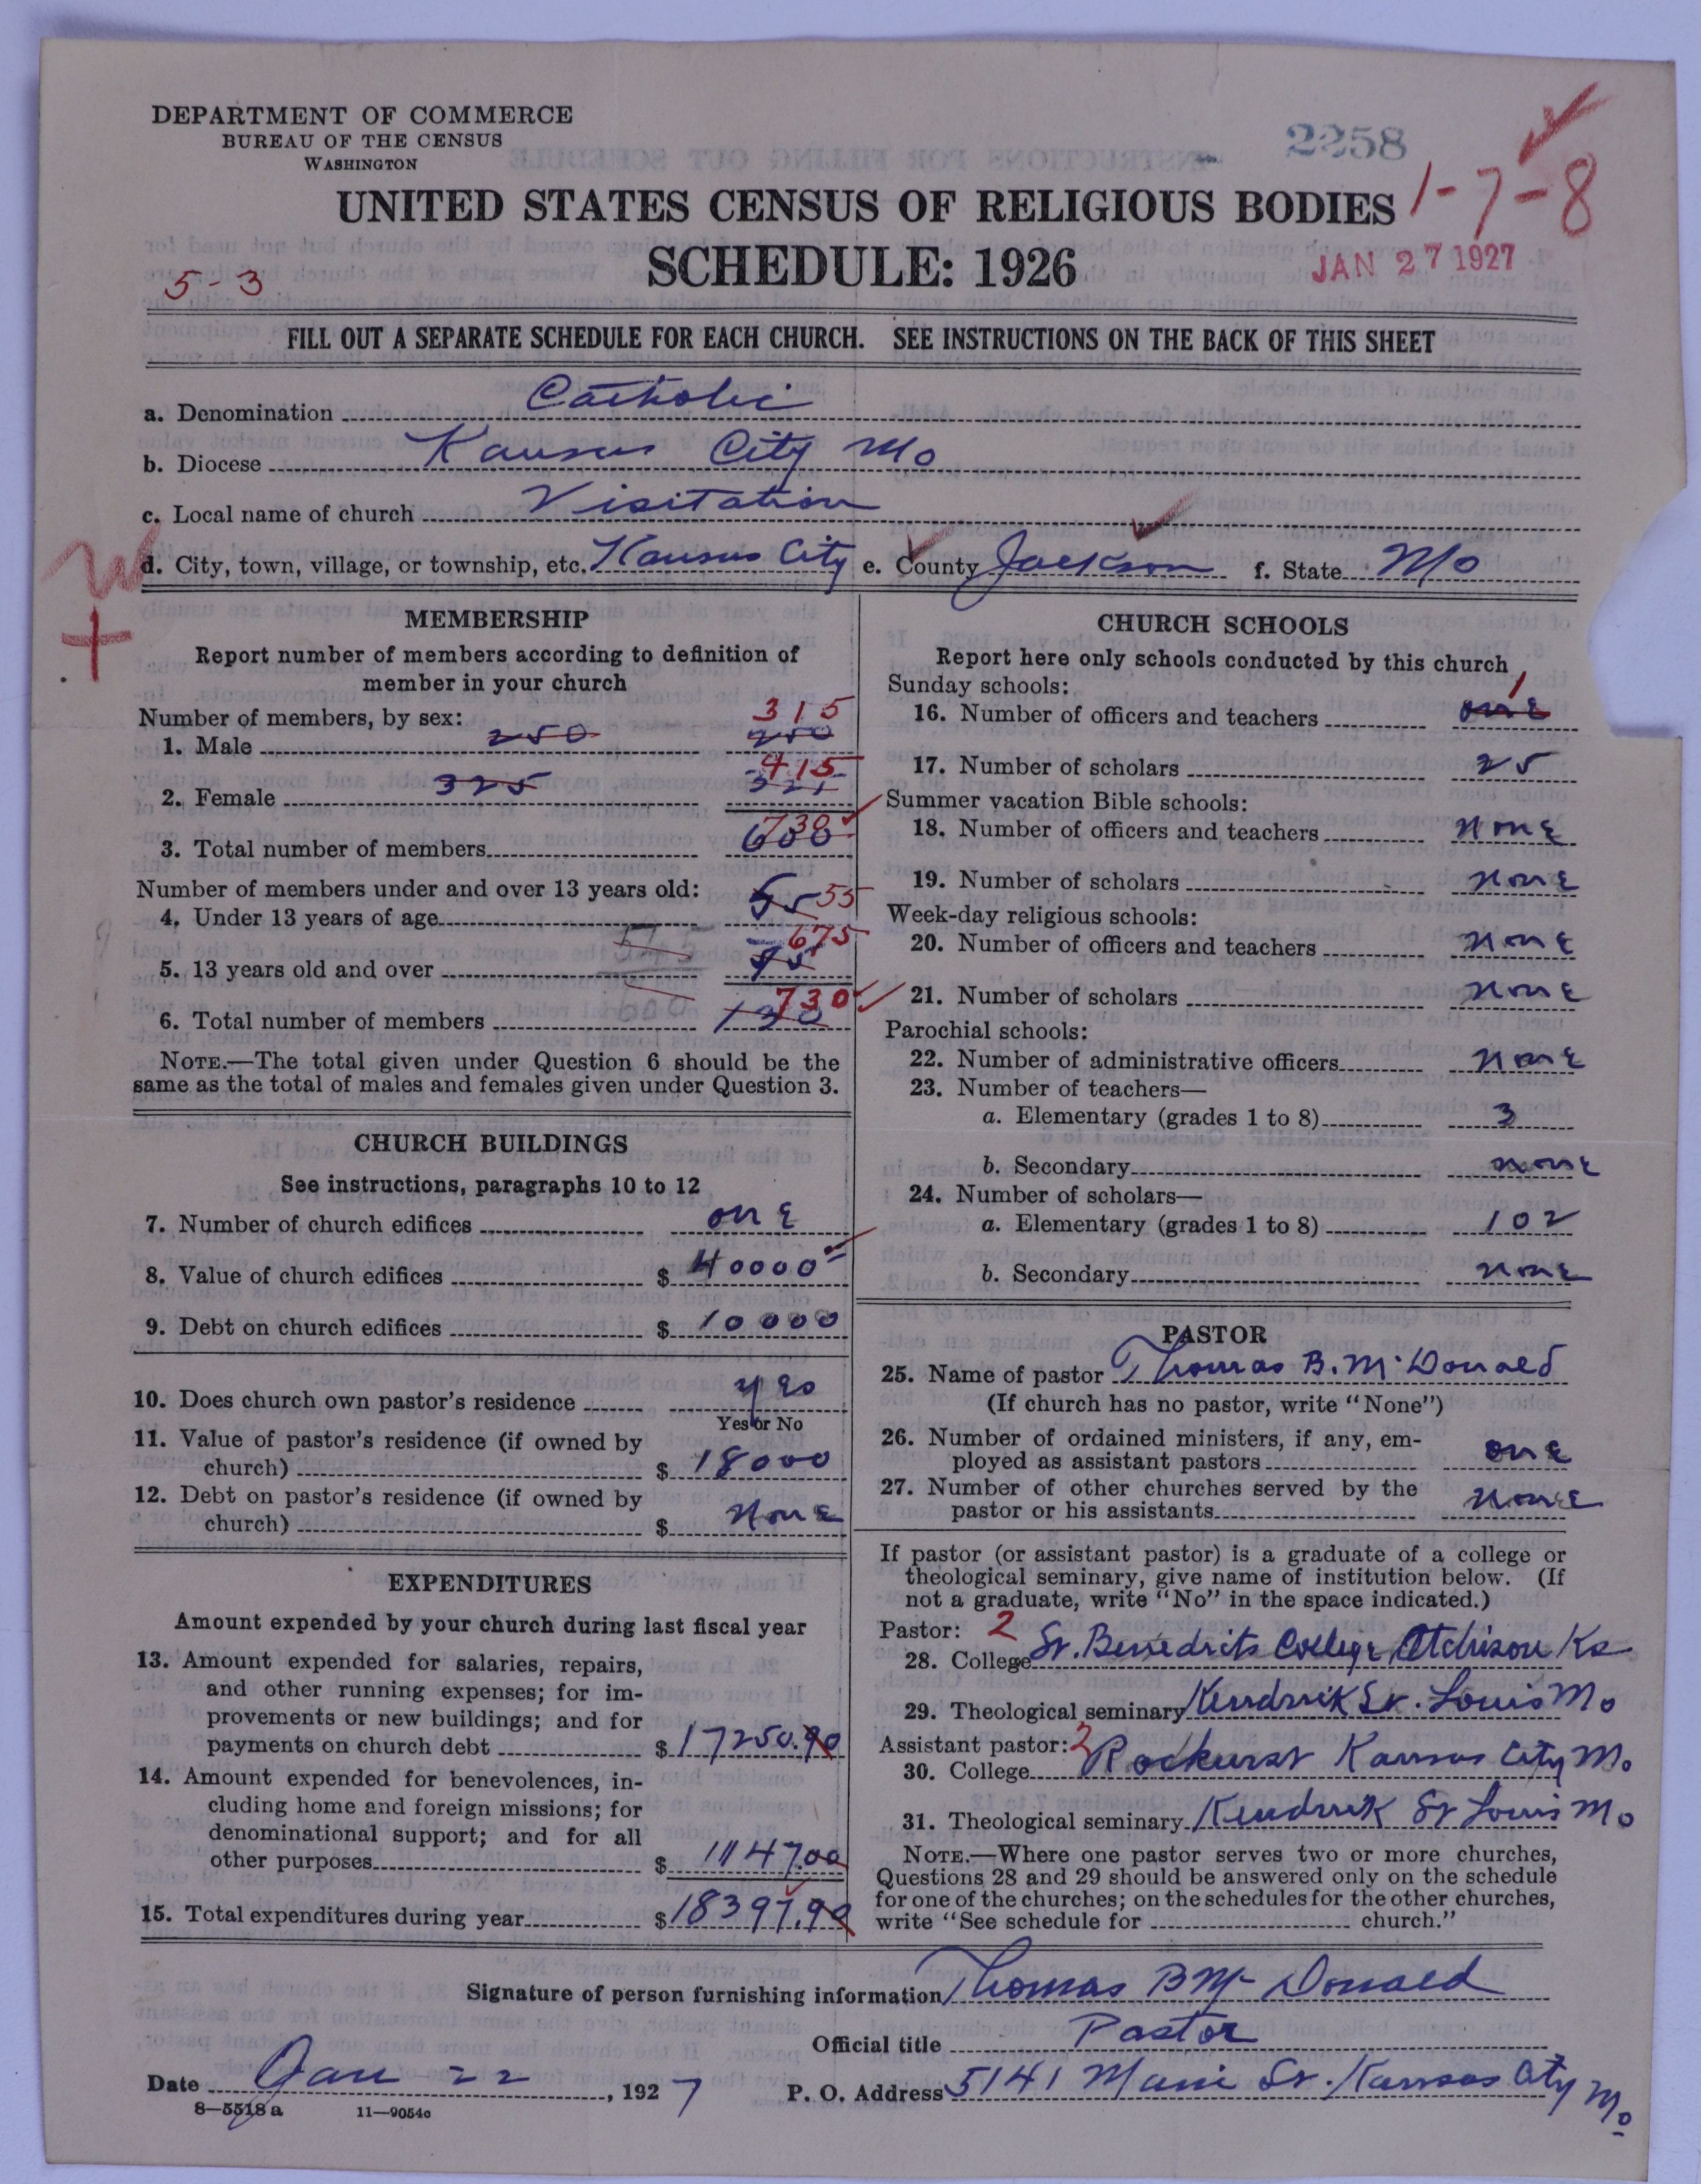 DEPARTMENT OF COMMERCE
BUREAU OF THE CENSUS
WASHINGTON
2258
UNITED STATES CENSUS OF RELIGIOUS BODIES
1-7-8
SCHEDULE: 1926
JAN 27 1927
5-3
FILL OUT A SEPARATE SCHEDULE FOR EACH CHURCH. SEE INSTRUCTIONS ON THE BACK OF THIS SHEET
a. Denomination Catholic
b. Diocese Kansas City Mo
c. Local name of church Visitation
d. City, town, village, or township, etc. Kansas City e. County Jackson f. State Mo
MEMBERSHIP
Report number of members according to definition of
member in your church
Number of members, by sex: 315
1. Male 250 250
415
2. Female 325 325
730
3. Total number of members 600
Number of members under and over 13 years old:
4. Under 13 years of age 55 55
675
5. 13 years old and over 75
730
6. Total number of members 600 130
NOTE.—The total given under Question 6 should be the
same as the total of males and females given under Question 3.
CHURCH BUILDINGS
See instructions, paragraphs 10 to 12
7. Number of church edifices one
8. Value of church edifices $ 40000
9. Debt on church edifices $ 10000
10. Does church own pastor's residence yes
Yes or No
11. Value of pastor's residence (if owned by
church) $ 18000
12. Debt on pastor's residence (if owned by
church) $ None
EXPENDITURES
Amount expended by your church during last fiscal year
13. Amount expended for salaries, repairs,
and other running expenses; for im-
provements or new buildings; and for
payments on church debt $ 17250.90
14. Amount expended for benevolences, in-
cluding home and foreign missions; for
denominational support; and for all
other purposes $ 1147.00
15. Total expenditures during year $ 18397.90
CHURCH SCHOOLS
Report here only schools conducted by this church
Sunday schools: 1
16. Number of officers and teachers one
17. Number of scholars 25
Summer vacation Bible schools:
18. Number of officers and teachers none
19. Number of scholars none
Week-day religious schools:
20. Number of officers and teachers none
21. Number of scholars none
Parochial schools:
22. Number of administrative officers none
23. Number of teachers—
a. Elementary (grades 1 to 8) 3
b. Secondary none
24. Number of scholars—
a. Elementary (grades 1 to 8) 102
b. Secondary none
PASTOR
25. Name of pastor Thomas B. McDonald
(If church has no pastor, write "None")
26. Number of ordained ministers, if any, em-
ployed as assistant pastors one
27. Number of other churches served by the
pastor or his assistants none
If pastor (or assistant pastor) is a graduate of a college or
theological seminary, give name of institution below. (If
not a graduate, write "No" in the space indicated.)
Pastor: 2
28. College St. Benedicts College Atchison Ks
29. Theological seminary Kendrick St. Louis Mo
Assistant pastor: 2
30. College Rockurst Kansas City Mo
31. Theological seminary Kendrick St Louis Mo
NOTE.—Where one pastor serves two or more churches,
Questions 28 and 29 should be answered only on the schedule
for one of the churches; on the schedules for the other churches,
write "See schedule for church."
Signature of person furnishing information Thomas B Mc Donald
Official title Pastor
Date Jan 22, 1927 P. O. Address 5141 Main St. Kansas City Mo
8—5518a 11—9054c